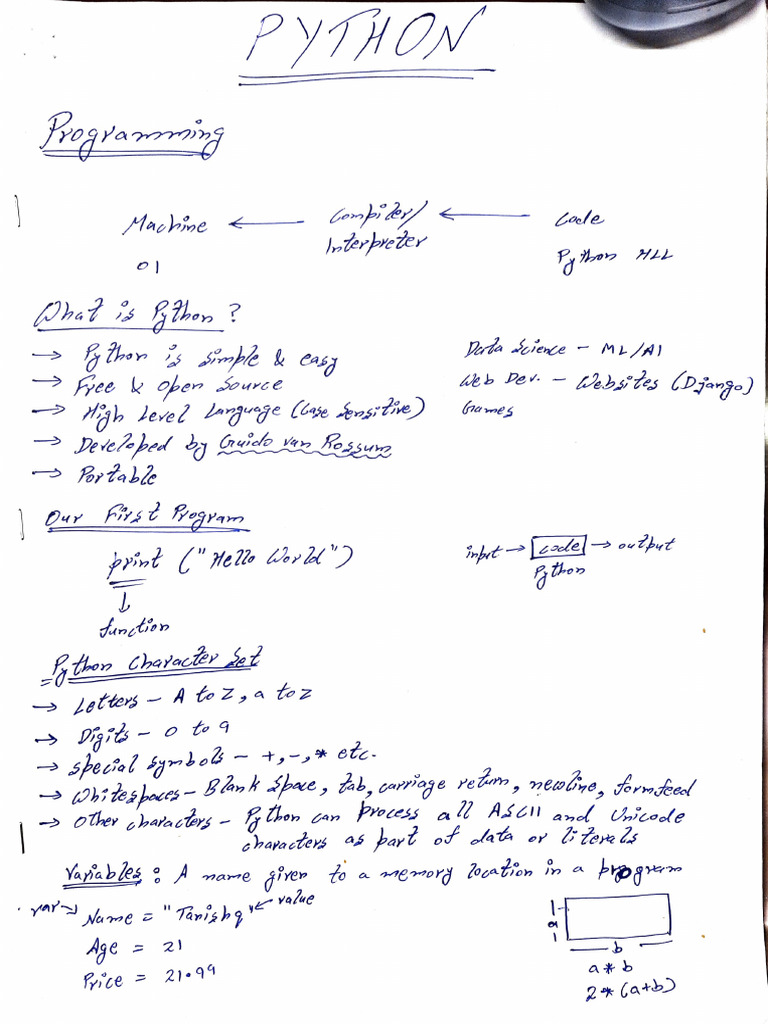 PYTHON
Programming
Machine ← Compiler/ ← Code
Interpreter
01 Python HLL
What is Python ?
→ Python is simple & easy
→ Free & Open Source
→ High Level Language (Case Sensitive)
→ Developed by Guido van Rossum
→ Portable
Data Science - ML/AI
Web Dev. - Websites (Django)
Games
Our First Program
print ("Hello World")
↓
function
input → code → output
Python
Python Character Set
→ Letters - A to Z, a to z
→ Digits - 0 to 9
→ Special symbols - +, -, * etc.
→ Whitespaces - Blank Space, tab, carriage return, newline, formfeed
→ Other characters - Python can process all ASCII and Unicode
characters as part of data or literals
Variables : A name given to a memory location in a program
var → Name = "Tanishq" ← value
Age = 21
Price = 21.99
a
b
a * b
2 * (a+b)